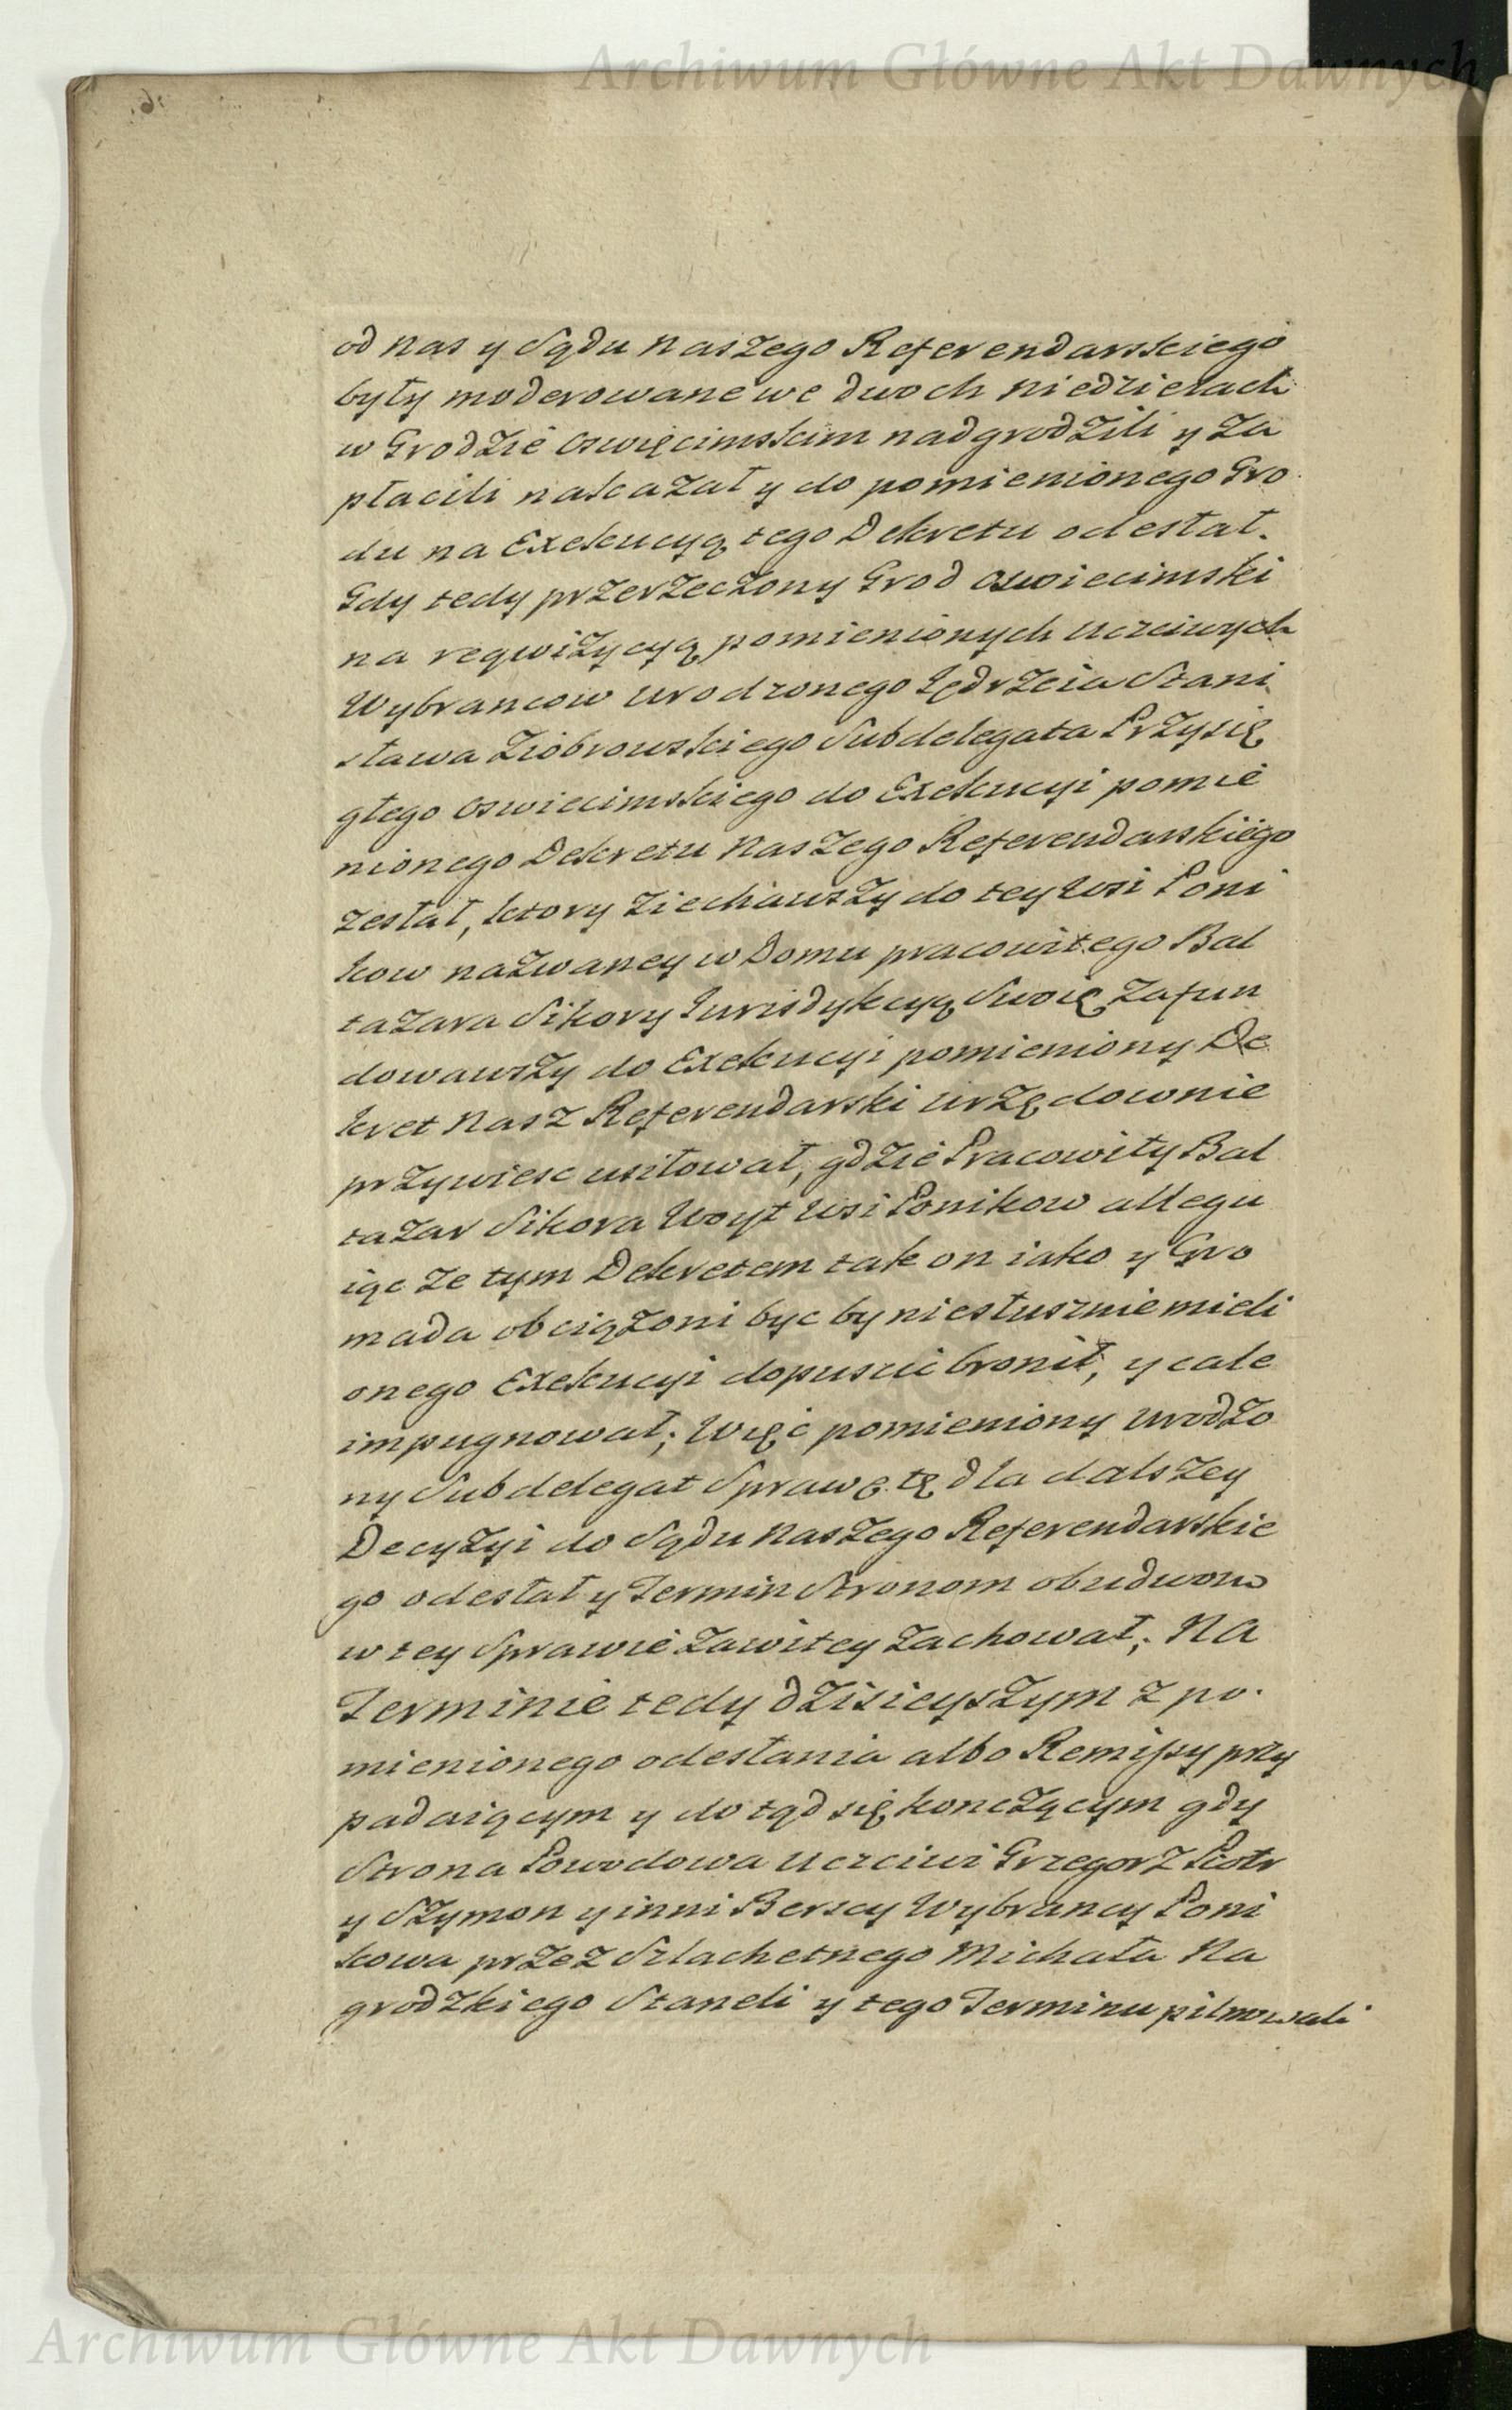 Archiwum Główne Akt Dawnych
od nas y Sądu naszego Referendarskiego
były moderowane we dwoch niedzielach
w Grodzie Oswięcimskim nadgrodzili y za
płacili nakazał y do pomienionego Gro
du na Exekucyą tego Dekretu odesłał.
Gdy tedy przerzeczony Grod Oswiecimski
na reqwizycyą pomienionych Uczciwych
Wybrancow Urodzonego Jędrzeia Stani
sława Ziobrowskiego Subdelegata Przysię
głego Oswiecimskiego do Exekucyi pomie
nionego Dekretu naszego Referendarskiego
zesłał, ktory ziechawszy do tey Wsi Poni
kow nazwaney w Domu pracowitego Bal
tazara Sikory Jurisdykcyą Swoię zafun
dowawszy do Exekucyi pomieniony De
kret nasz Referendarski urzędownie
przywiesc usiłował, gdzie Pracowity Bal
tazar Sikora Woyt Wsi Ponikow allegu
iąc ze tym Dekretem tak on iako y Gro
mada obciązoni byc by niesłusznie mieli
onego Exekucyi dopuscic bronił, y cale
impugnował; Więc pomieniony Urodzo
ny Subdelegat Sprawę tę dla dalszey
Decyzyi do Sądu naszego Referendarskie
go odesłał y Termin Stronom obudwom
w tey Sprawie zawitey zachował; Na
Terminie tedy dzisieyszym z po
mienionego odesłania albo Remissy przy
padaiącym y do tąd się konczącym gdy
Strona Powodowa Uczciwi Grzegorz Piotr
y Szymon y inni Berscy Wybrancy Poni
kowa przez Szlachetnego Michała Na
grodzkiego Staneli y tego Terminu pilnowali
Archiwum Główne Akt Dawnych